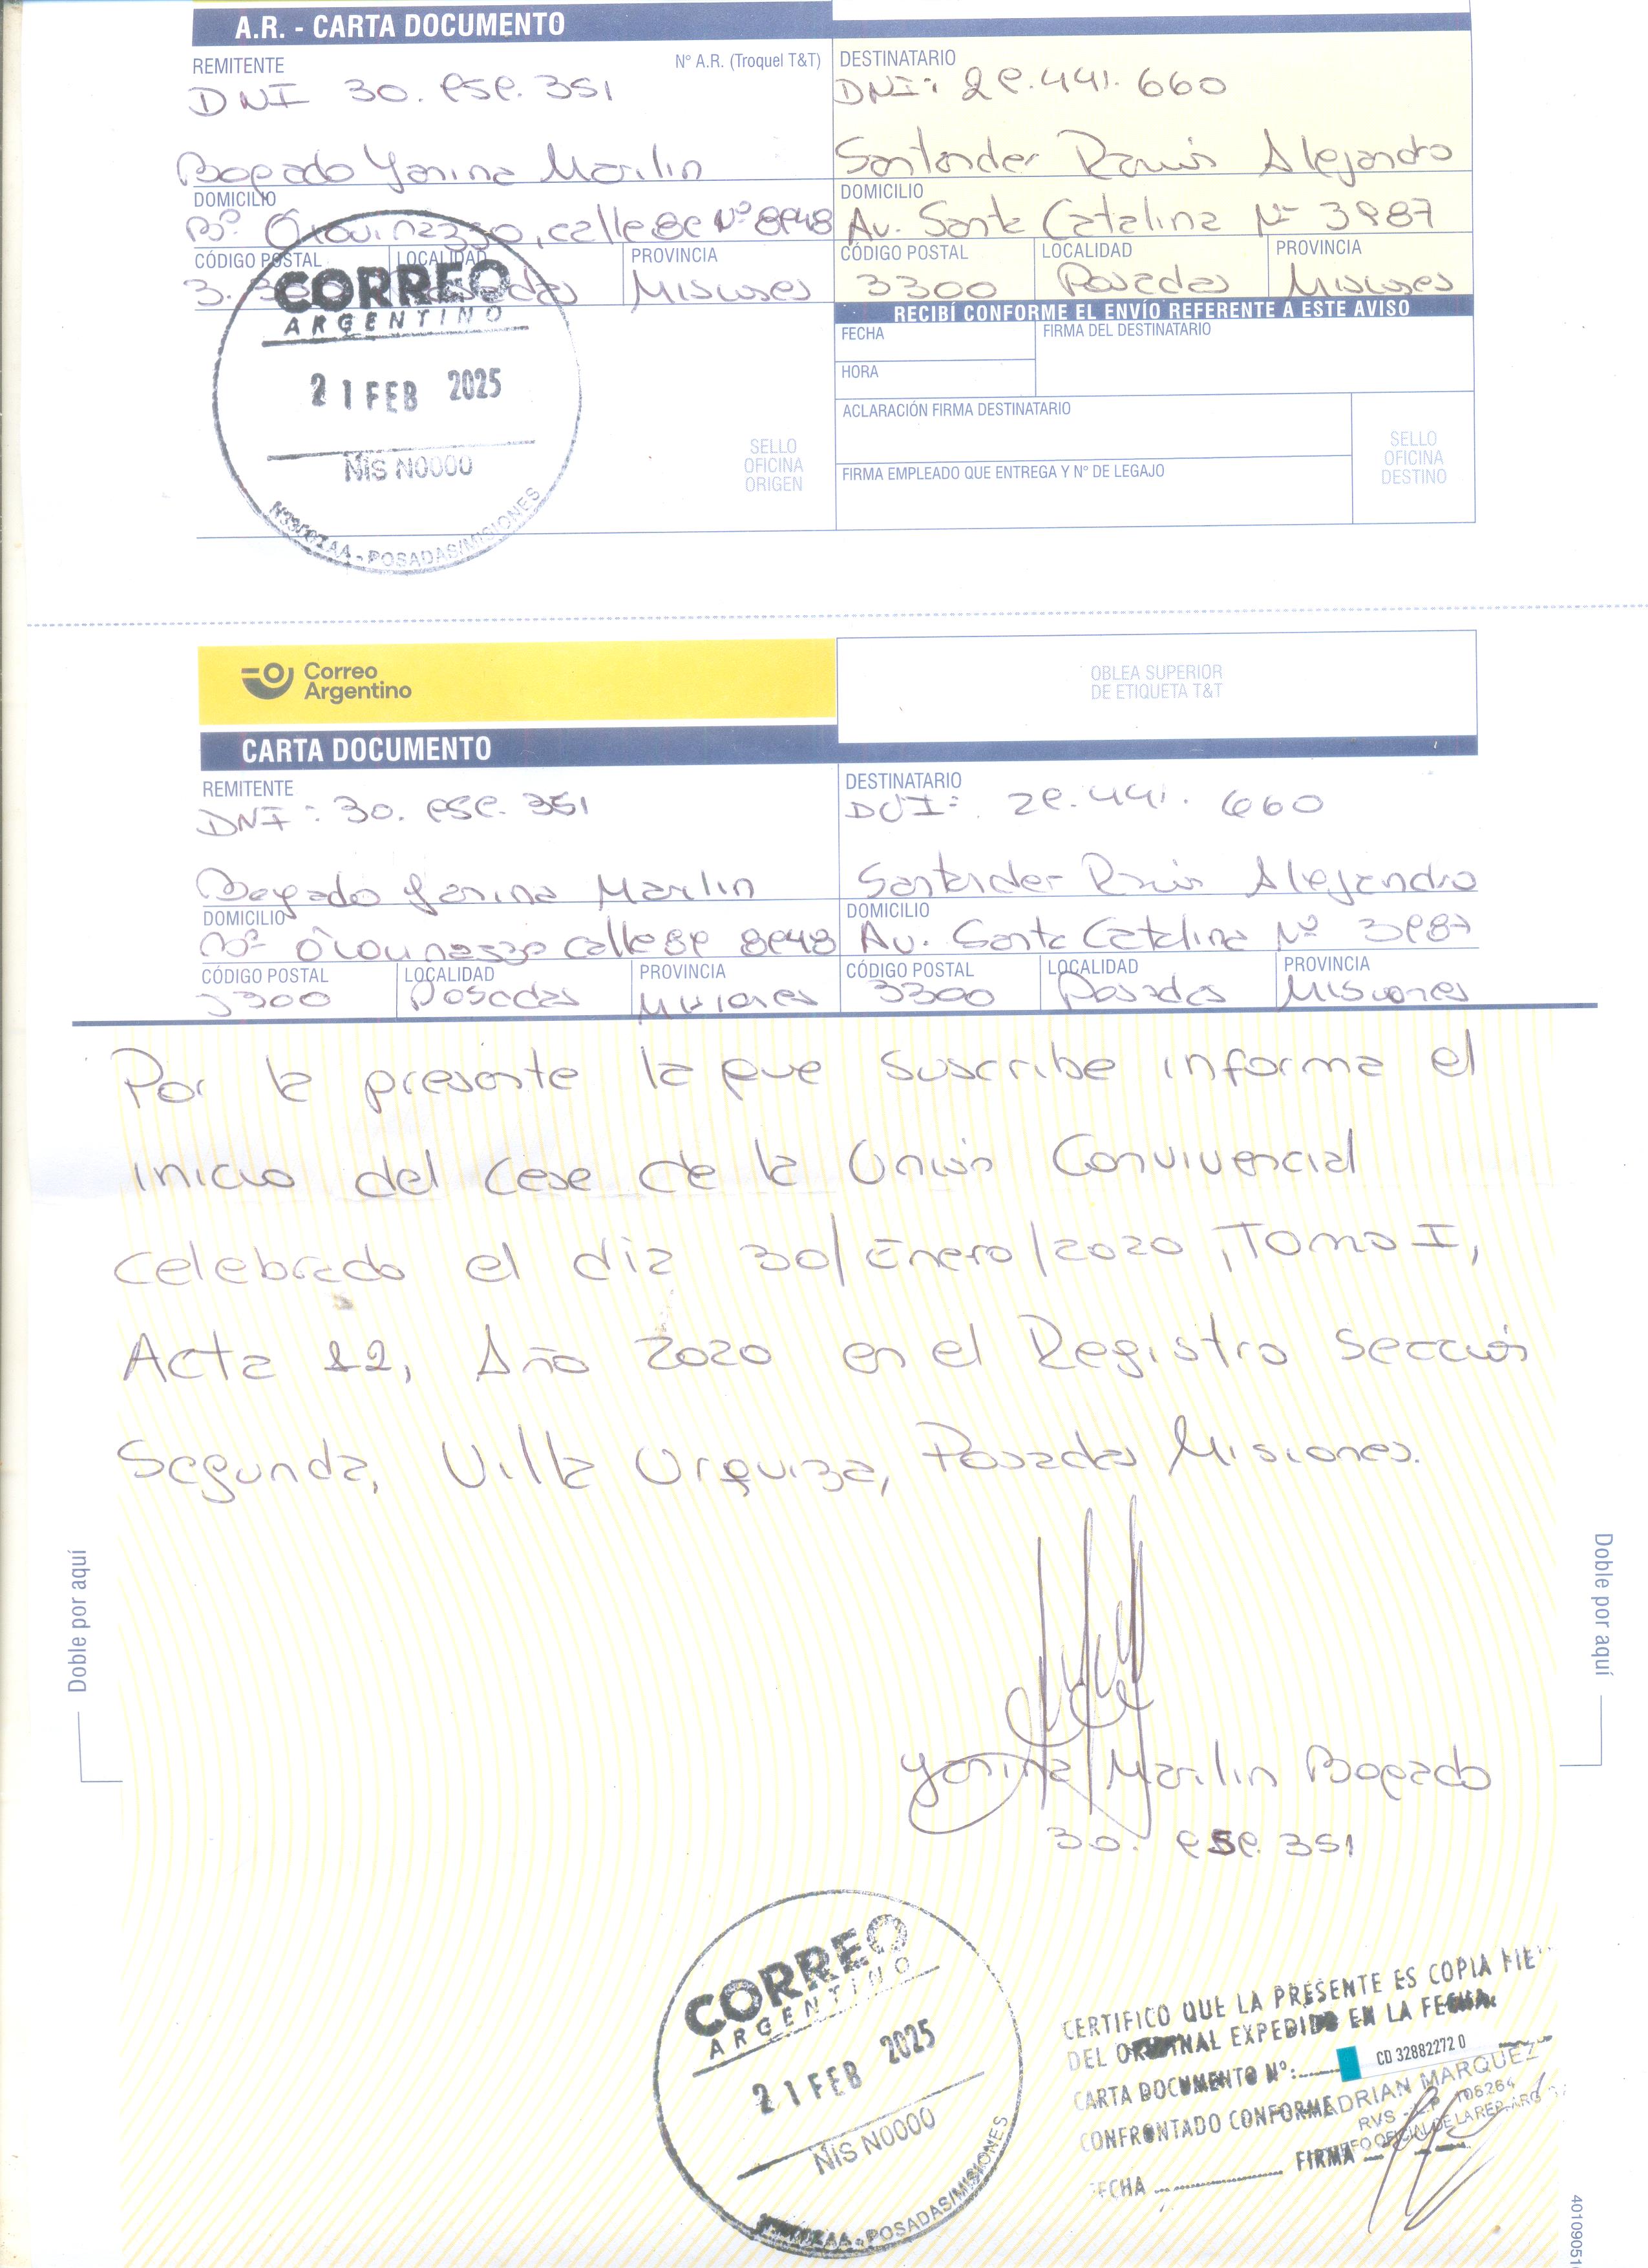 A.R. - CARTA DOCUMENTO
REMITENTE
N° A.R. (Troquel T&T)
DNI 30.959.351
Bogado Yanina Marilin
DOMICILIO
B° calle 89 N° 8948
CÓDIGO POSTAL
LOCALIDAD
PROVINCIA
Misiones
DESTINATARIO
DNI: 29.441.660
Santander Ramón Alejandro
DOMICILIO
Av. Santa Catalina N° 3987
CÓDIGO POSTAL
LOCALIDAD
PROVINCIA
3300 Posadas Misiones
RECIBÍ CONFORME EL ENVÍO REFERENTE A ESTE AVISO
FECHA
FIRMA DEL DESTINATARIO
HORA
ACLARACIÓN FIRMA DESTINATARIO
FIRMA EMPLEADO QUE ENTREGA Y N° DE LEGAJO
SELLO
OFICINA
DESTINO
CORREO
ARGENTINO
21 FEB 2025
NIS N0000
POSADAS/MISIONES
SELLO
OFICINA
ORIGEN
Correo
Argentino
OBLEA SUPERIOR
DE ETIQUETA T&T
CARTA DOCUMENTO
REMITENTE
DNI: 30.959.351
Bogado Yanina Marilin
DOMICILIO
B° calle 89 8948
CÓDIGO POSTAL
LOCALIDAD
PROVINCIA
3300 Posadas Misiones
DESTINATARIO
DNI: 29.441.660
Santander Ramón Alejandro
DOMICILIO
Av. Santa Catalina N° 3987
CÓDIGO POSTAL
LOCALIDAD
PROVINCIA
3300 Posadas Misiones
Por la presente la que suscribe informa el
inicio del cese de la Unión Convivencial
celebrado el día 30/Enero/2020, Tomo I,
Acta 22, Año 2020 en el Registro Sección
Segunda, Villa Urquiza, Posadas Misiones.
Doble por aquí
Doble por aquí
Yanina Marilin Bogado
30.959.351
CORREO
ARGENTINO
21 FEB 2025
NIS N0000
POSADAS/MISIONES
CERTIFICO QUE LA PRESENTE ES COPIA FIEL
DEL ORIGINAL EXPEDIDO EN LA FECHA.
CARTA DOCUMENTO N°: CD 32882272 0
CONFRONTADO CONFORME
ADRIAN MARQUEZ
RVS - L.P 106264
CORREO OFICIAL DE LA REP. ARG
FECHA
FIRMA